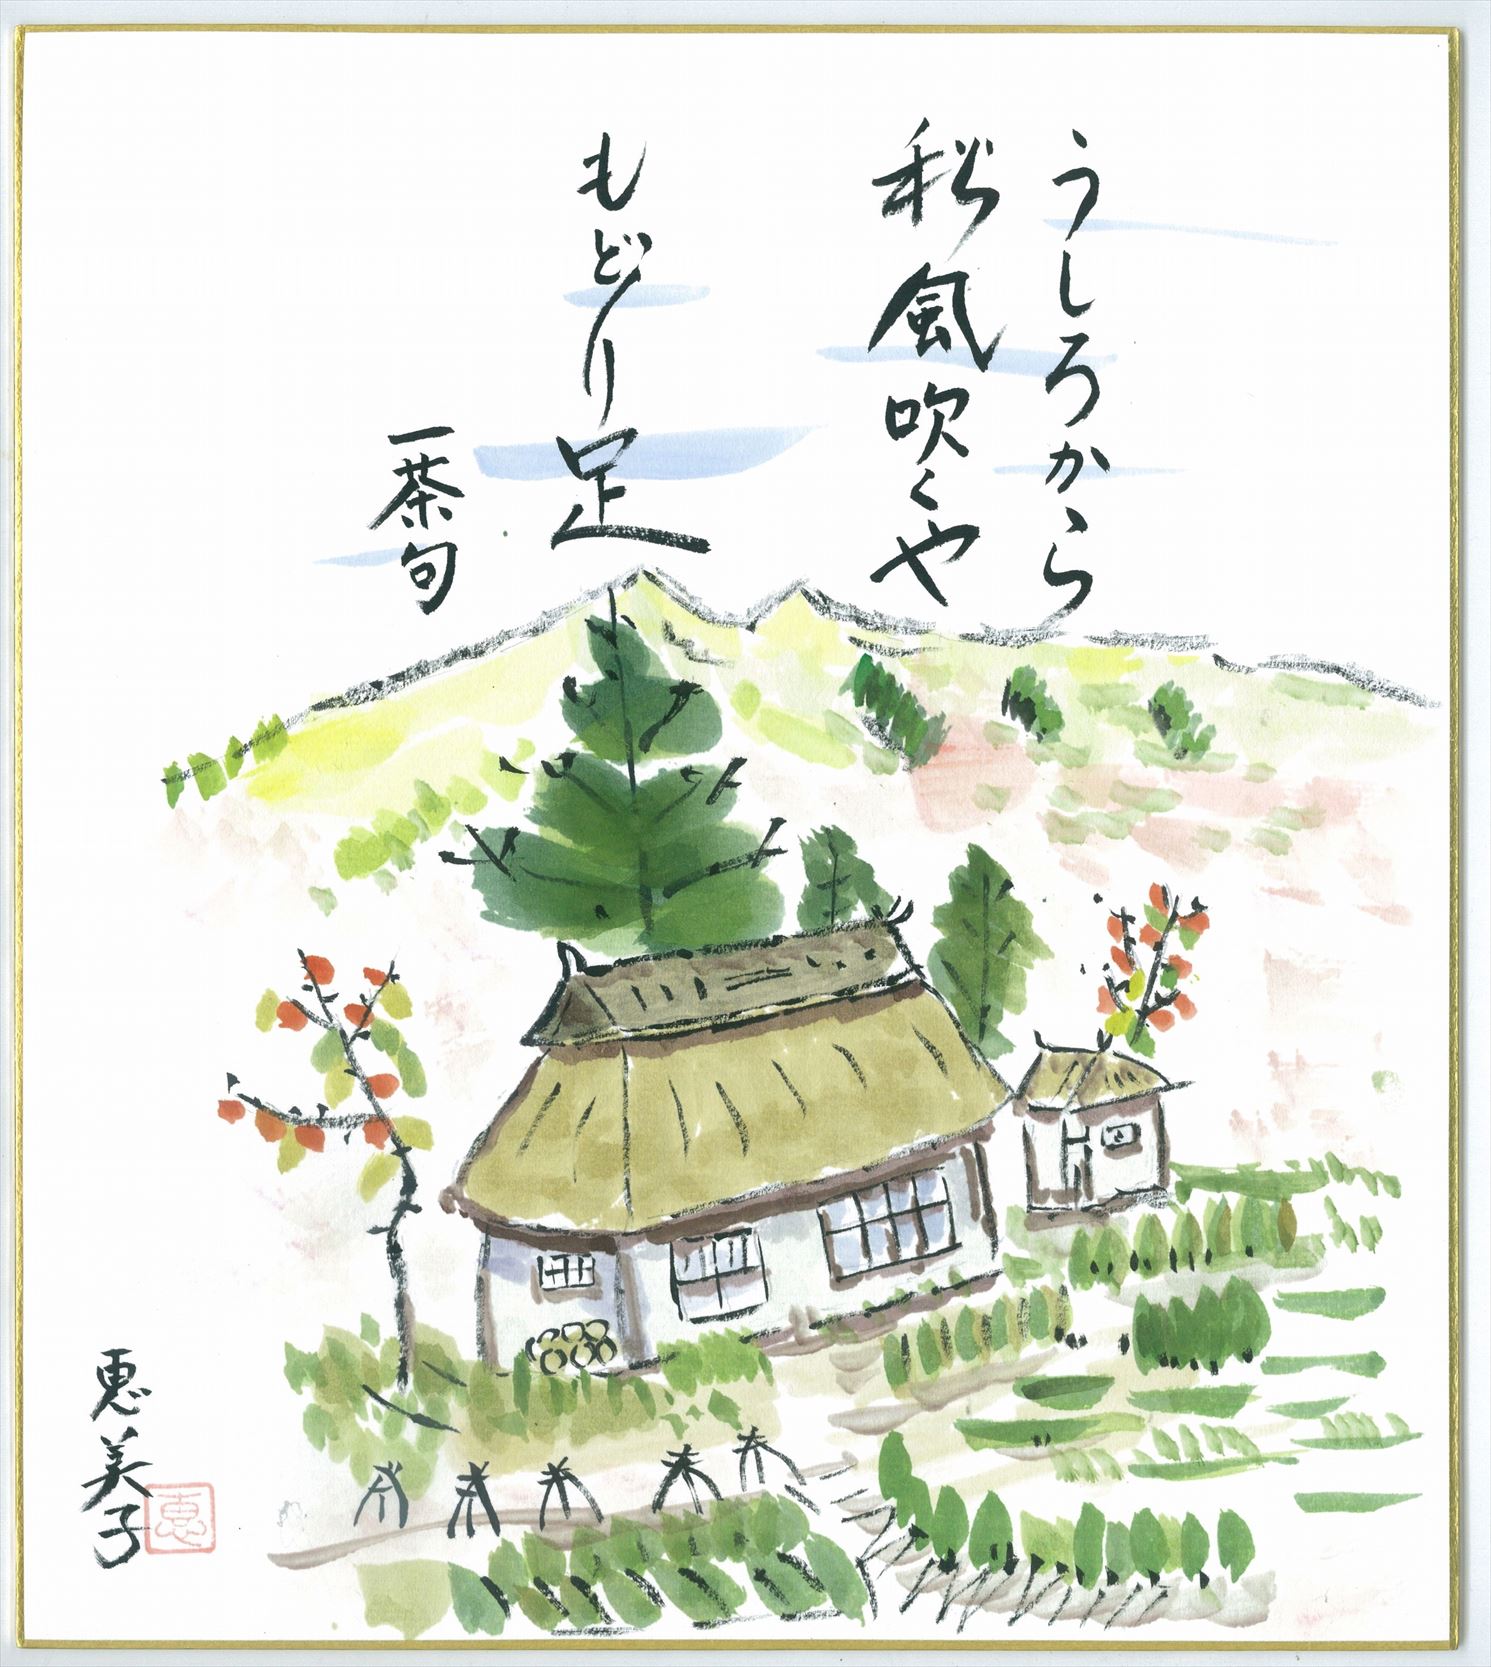 うしろから
秋風吹くや
もどり足
一茶句
恵美子
恵